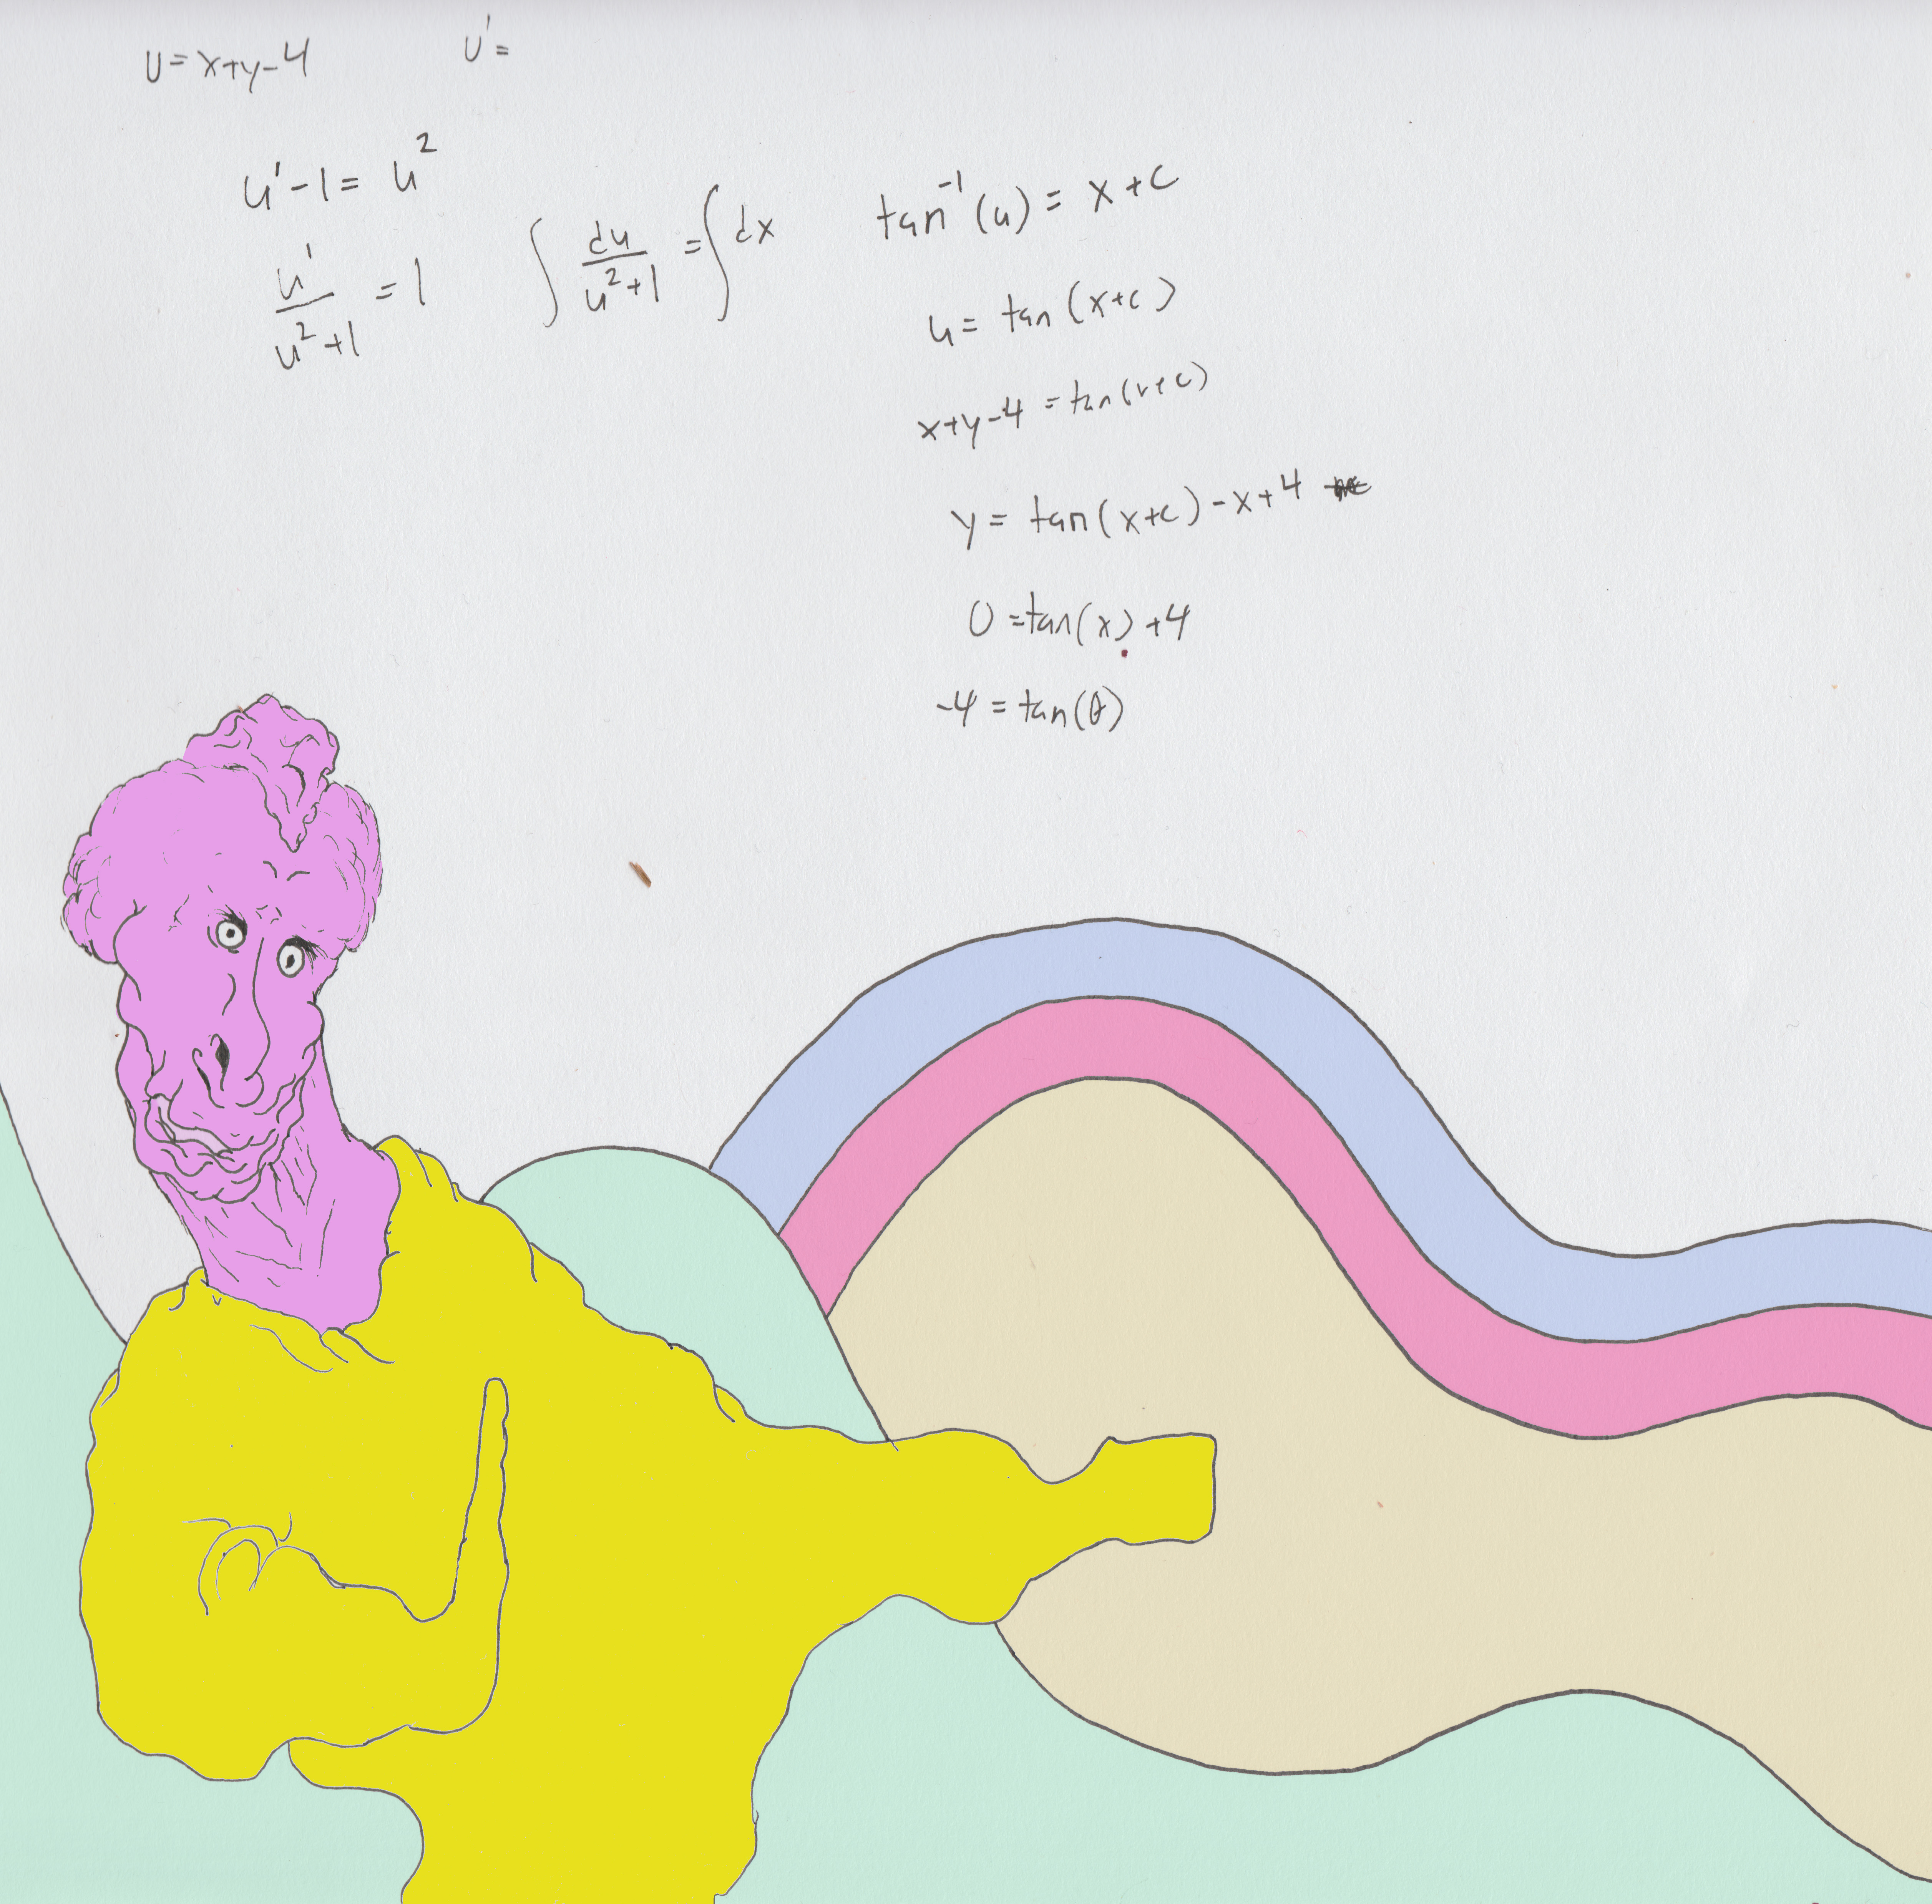 U=x+y-4 U'=
u'-1= u²
u'/(u²+1) =1
∫ du/(u²+1) = ∫dx
tan⁻¹(u) = x+c
u= tan(x+c)
x+y-4 =tan(x+c)
y= tan(x+c)-x+4
0=tan(x)+4
-4=tan(θ)